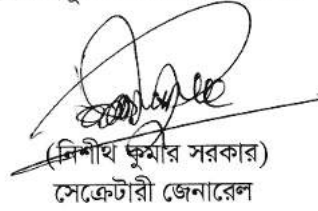 (নিশীথ কুমার সরকার)
সেক্রেটারী জেনারেল